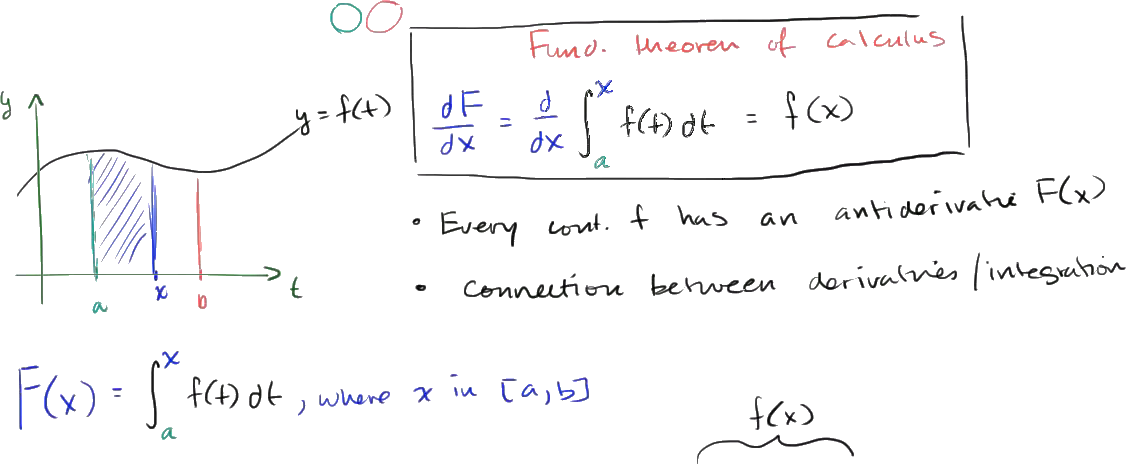 Fund. theorem of calculus
y
y = f(t)
dF/dx = d/dx ∫_a^x f(t) dt = f(x)
• Every cont. f has an antiderivative F(x)
• connection between derivatives/integration
a x b t
F(x) = ∫_a^x f(t) dt, where x in [a,b]
f(x)